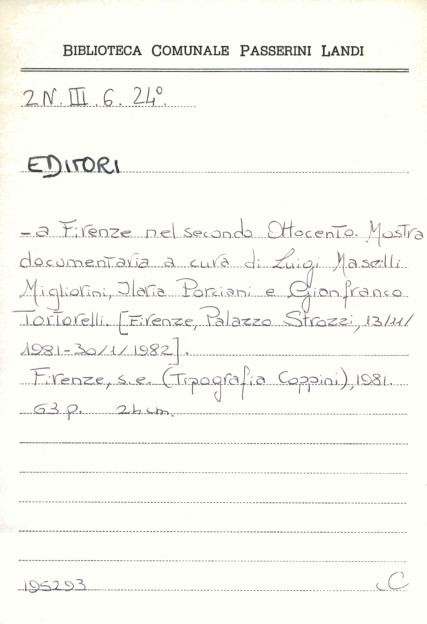 BIBLIOTECA COMUNALE PASSERINI LANDI
2N. III. 6. 24º.
EDITORI
- a Firenze nel secondo Ottocento. Mostra
documentaria a cura di Luigi Mascilli
Migliorini, Ilaria Porciani e Gianfranco
Tortorelli. [Firenze, Palazzo Strozzi, 13/11/
1981-30/1/1982].
Firenze, s.e. (Tipografia Coppini), 1981.
63 p. 24 cm.
195293 C